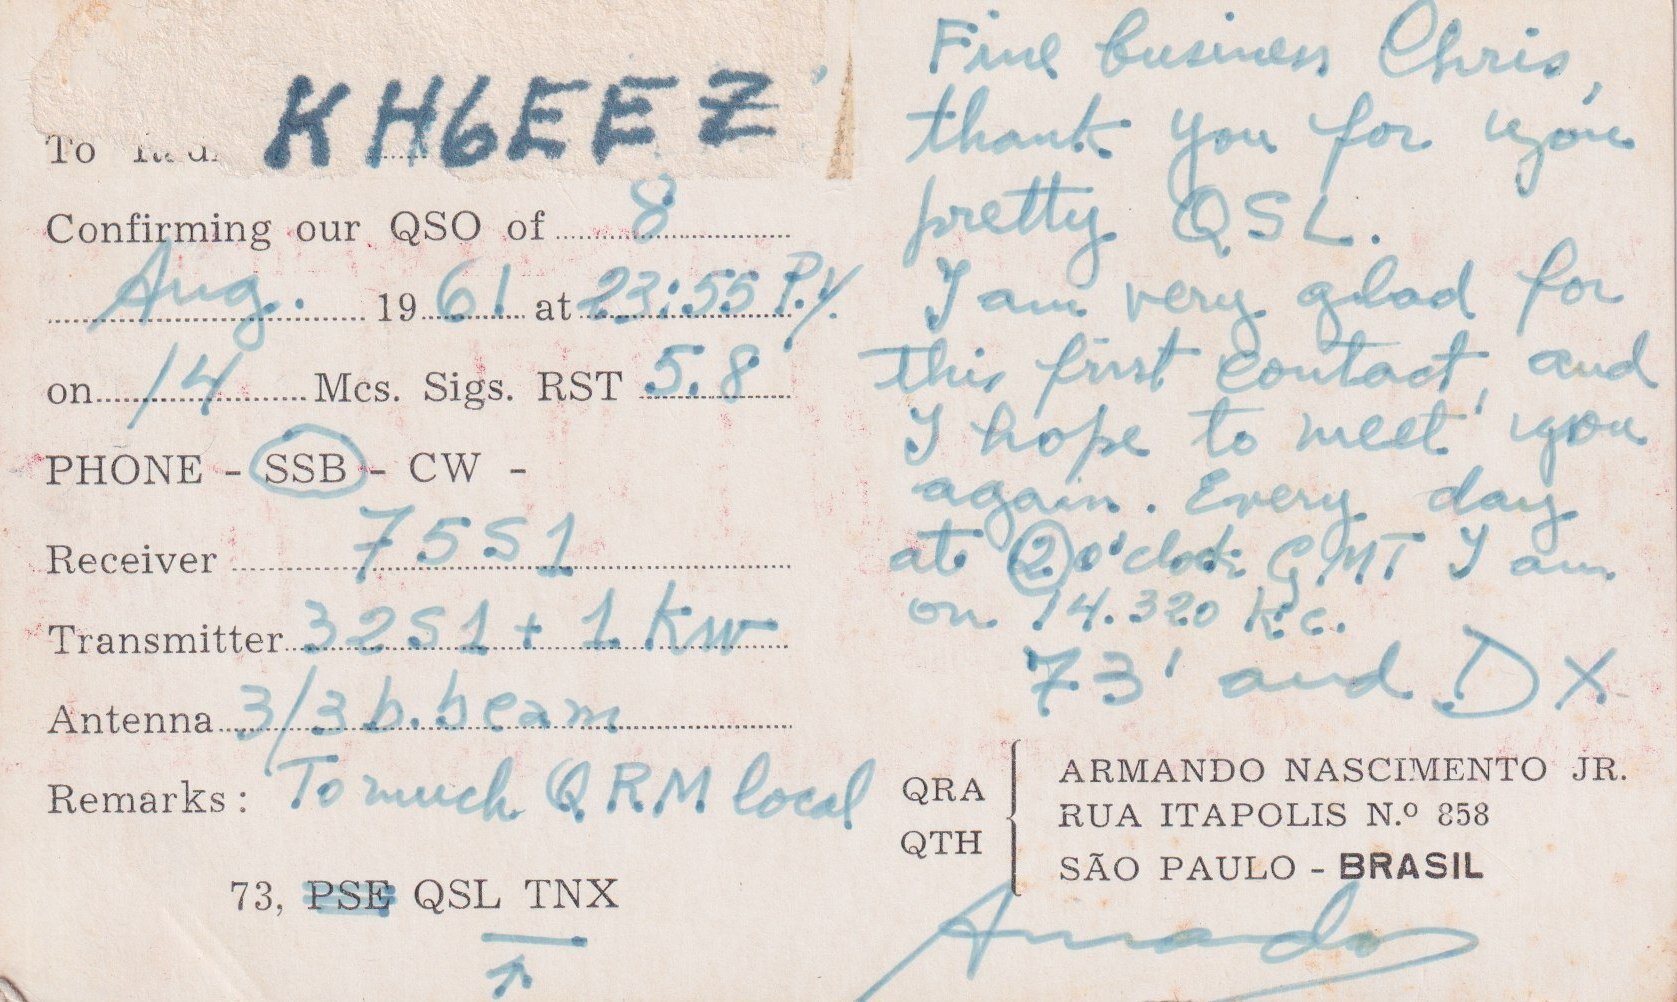 KH6EEZ
To
Confirming our QSO of 8
Aug. 1961 at 23:55 P.Y.
on 14 Mcs. Sigs. RST 5.8
PHONE - SSB - CW -
Receiver 75S1
Transmitter 32S1 + 1 KW
Antenna 3/3 b. beam
Remarks: To much QRM local
73, PSE QSL TNX
Fine business Chris,
thank you for your
pretty QSL.
I am very glad for
this first contact, and
I hope to meet you
again. Every day
at 2 o'clock GMT I am
on 14.320 kc.
73' and DX
QRA
QTH
ARMANDO NASCIMENTO JR.
RUA ITAPOLIS N.º 858
SÃO PAULO - BRASIL
Armando